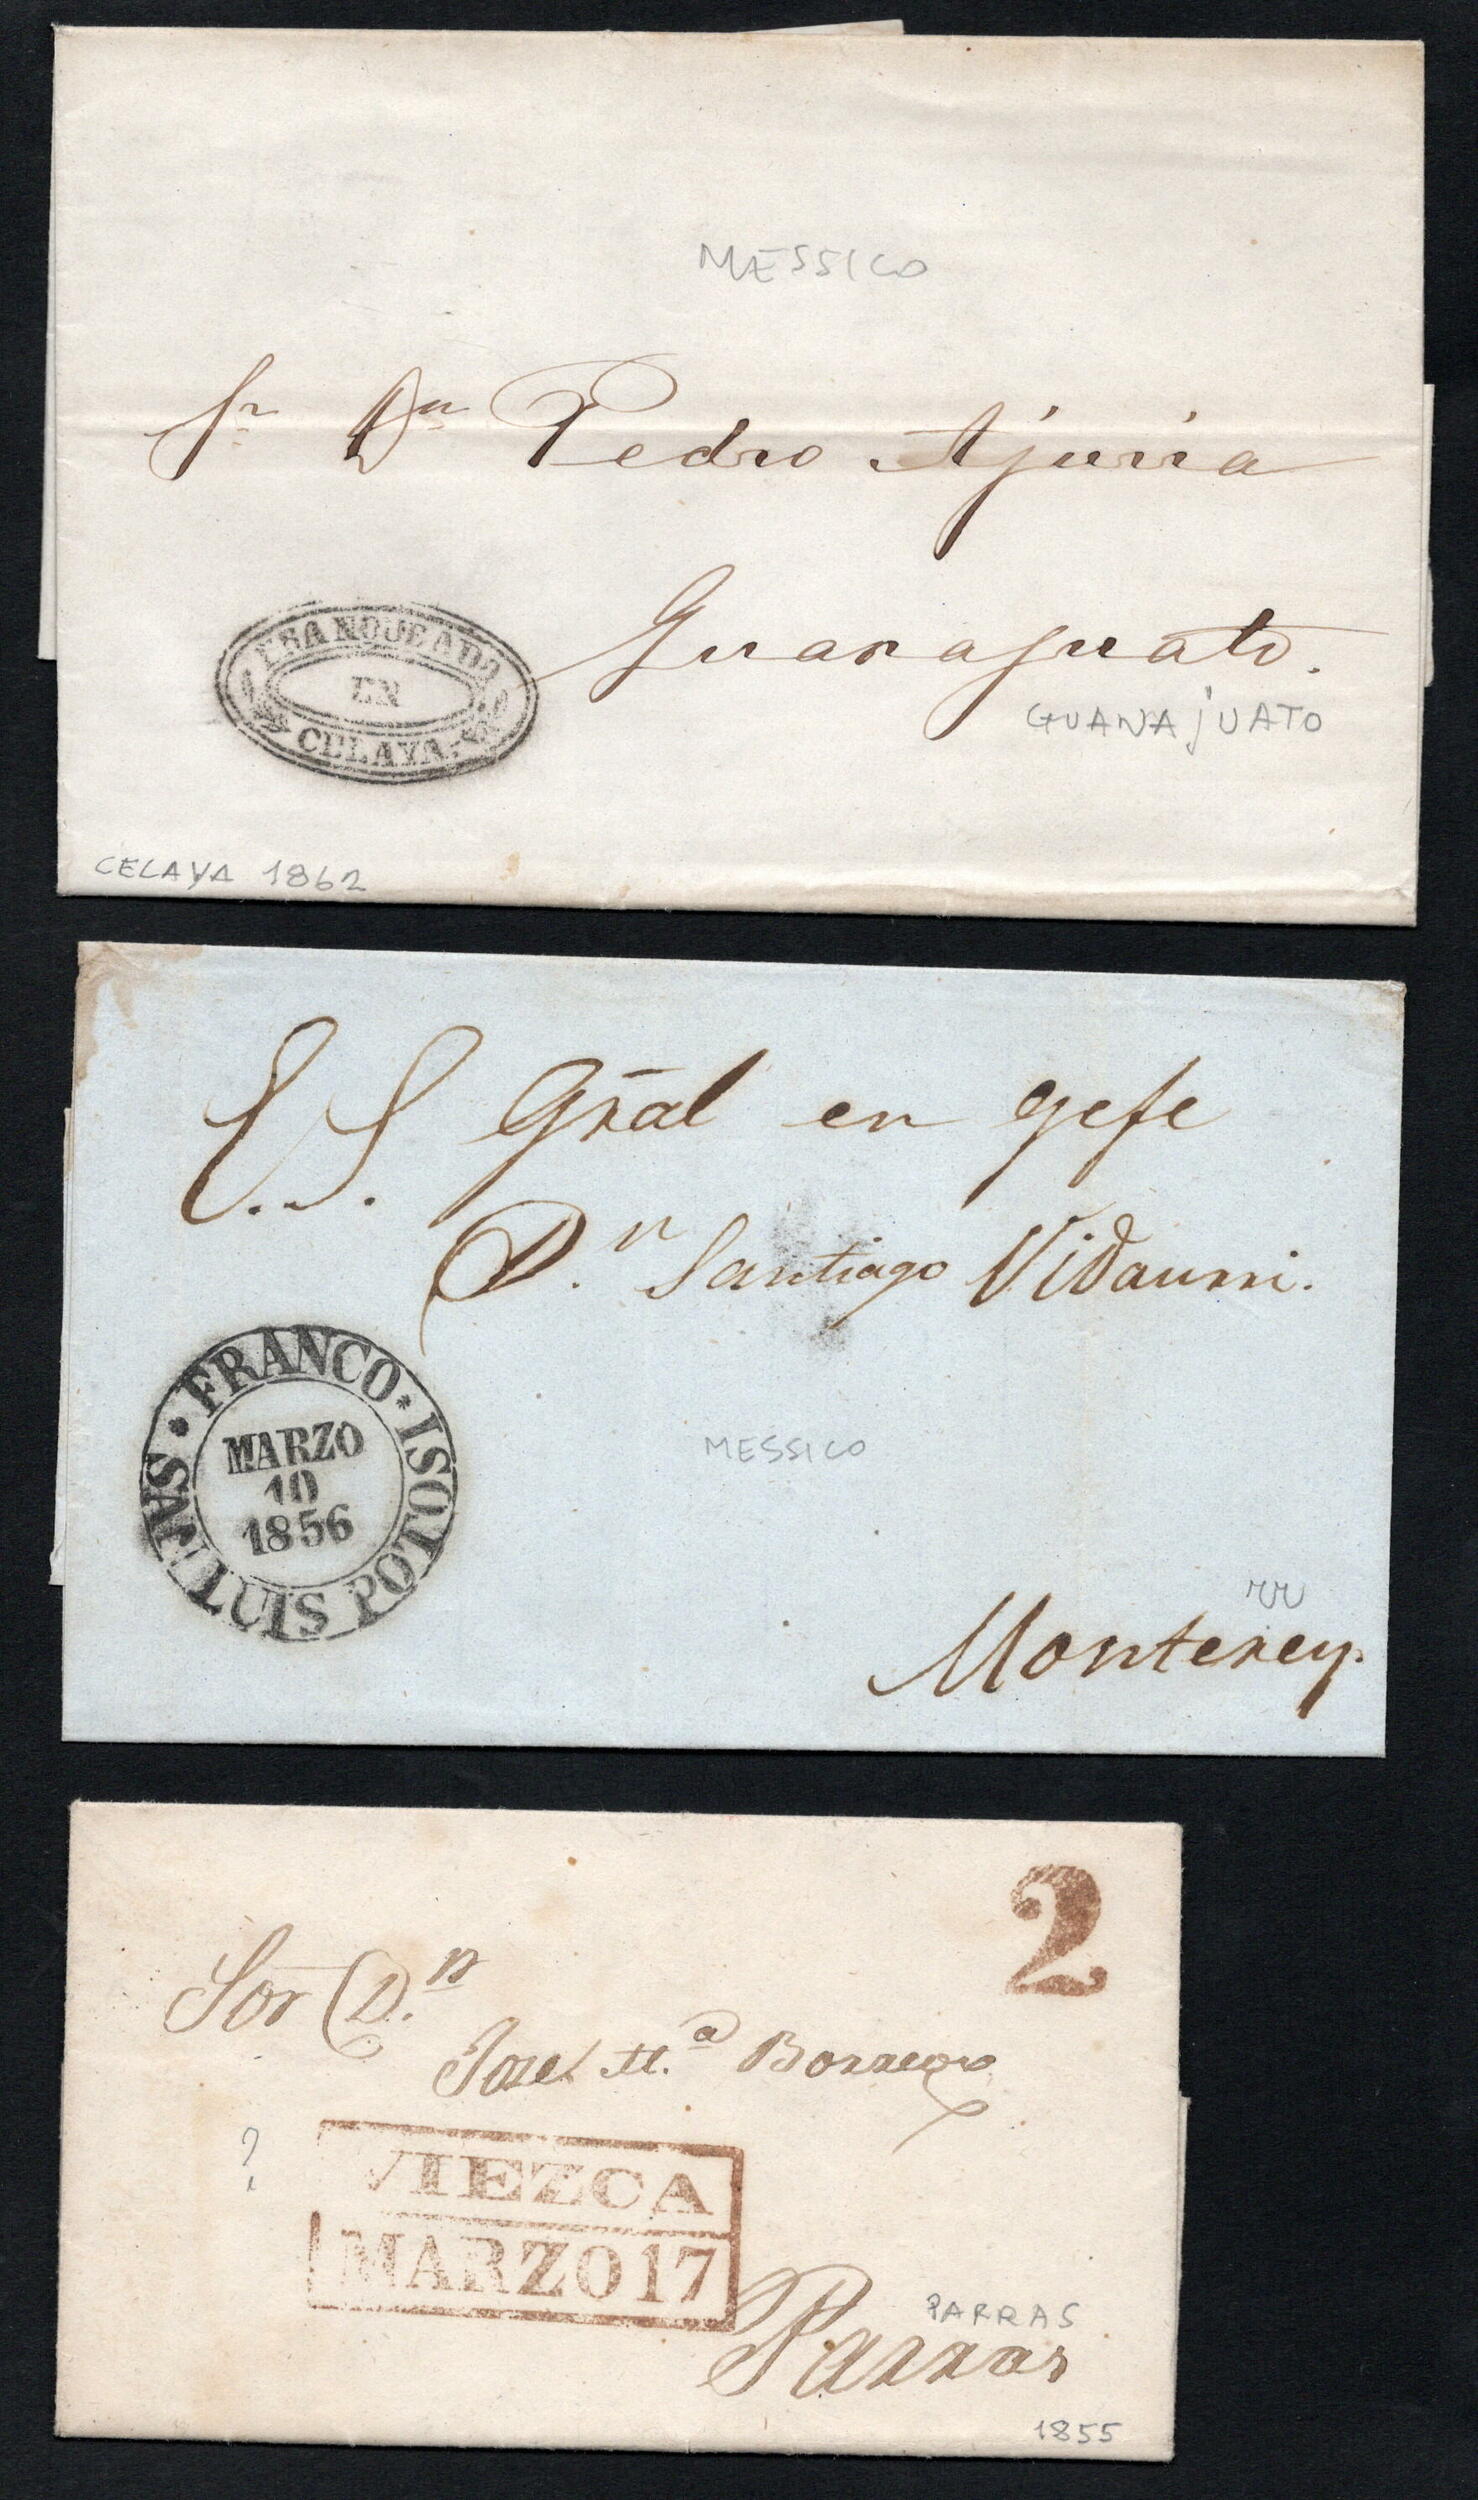 MESSICO
Sr Dn Pedro Ajuria
Guanajuato.
GUANAJUATO
FRANQUEADO
EN
CELAYA.
CELAYA 1862
E.S. Gral en gefe
D.n Santiago Vidaurri.
FRANCO
SAN LUIS POTOSI
MARZO
10
1856
MESSICO
rr
Monterey.
2
Sor D.n
Jose M.a Borrego
?
VIEZCA
MARZO 17
PARRAS
Parras
1855